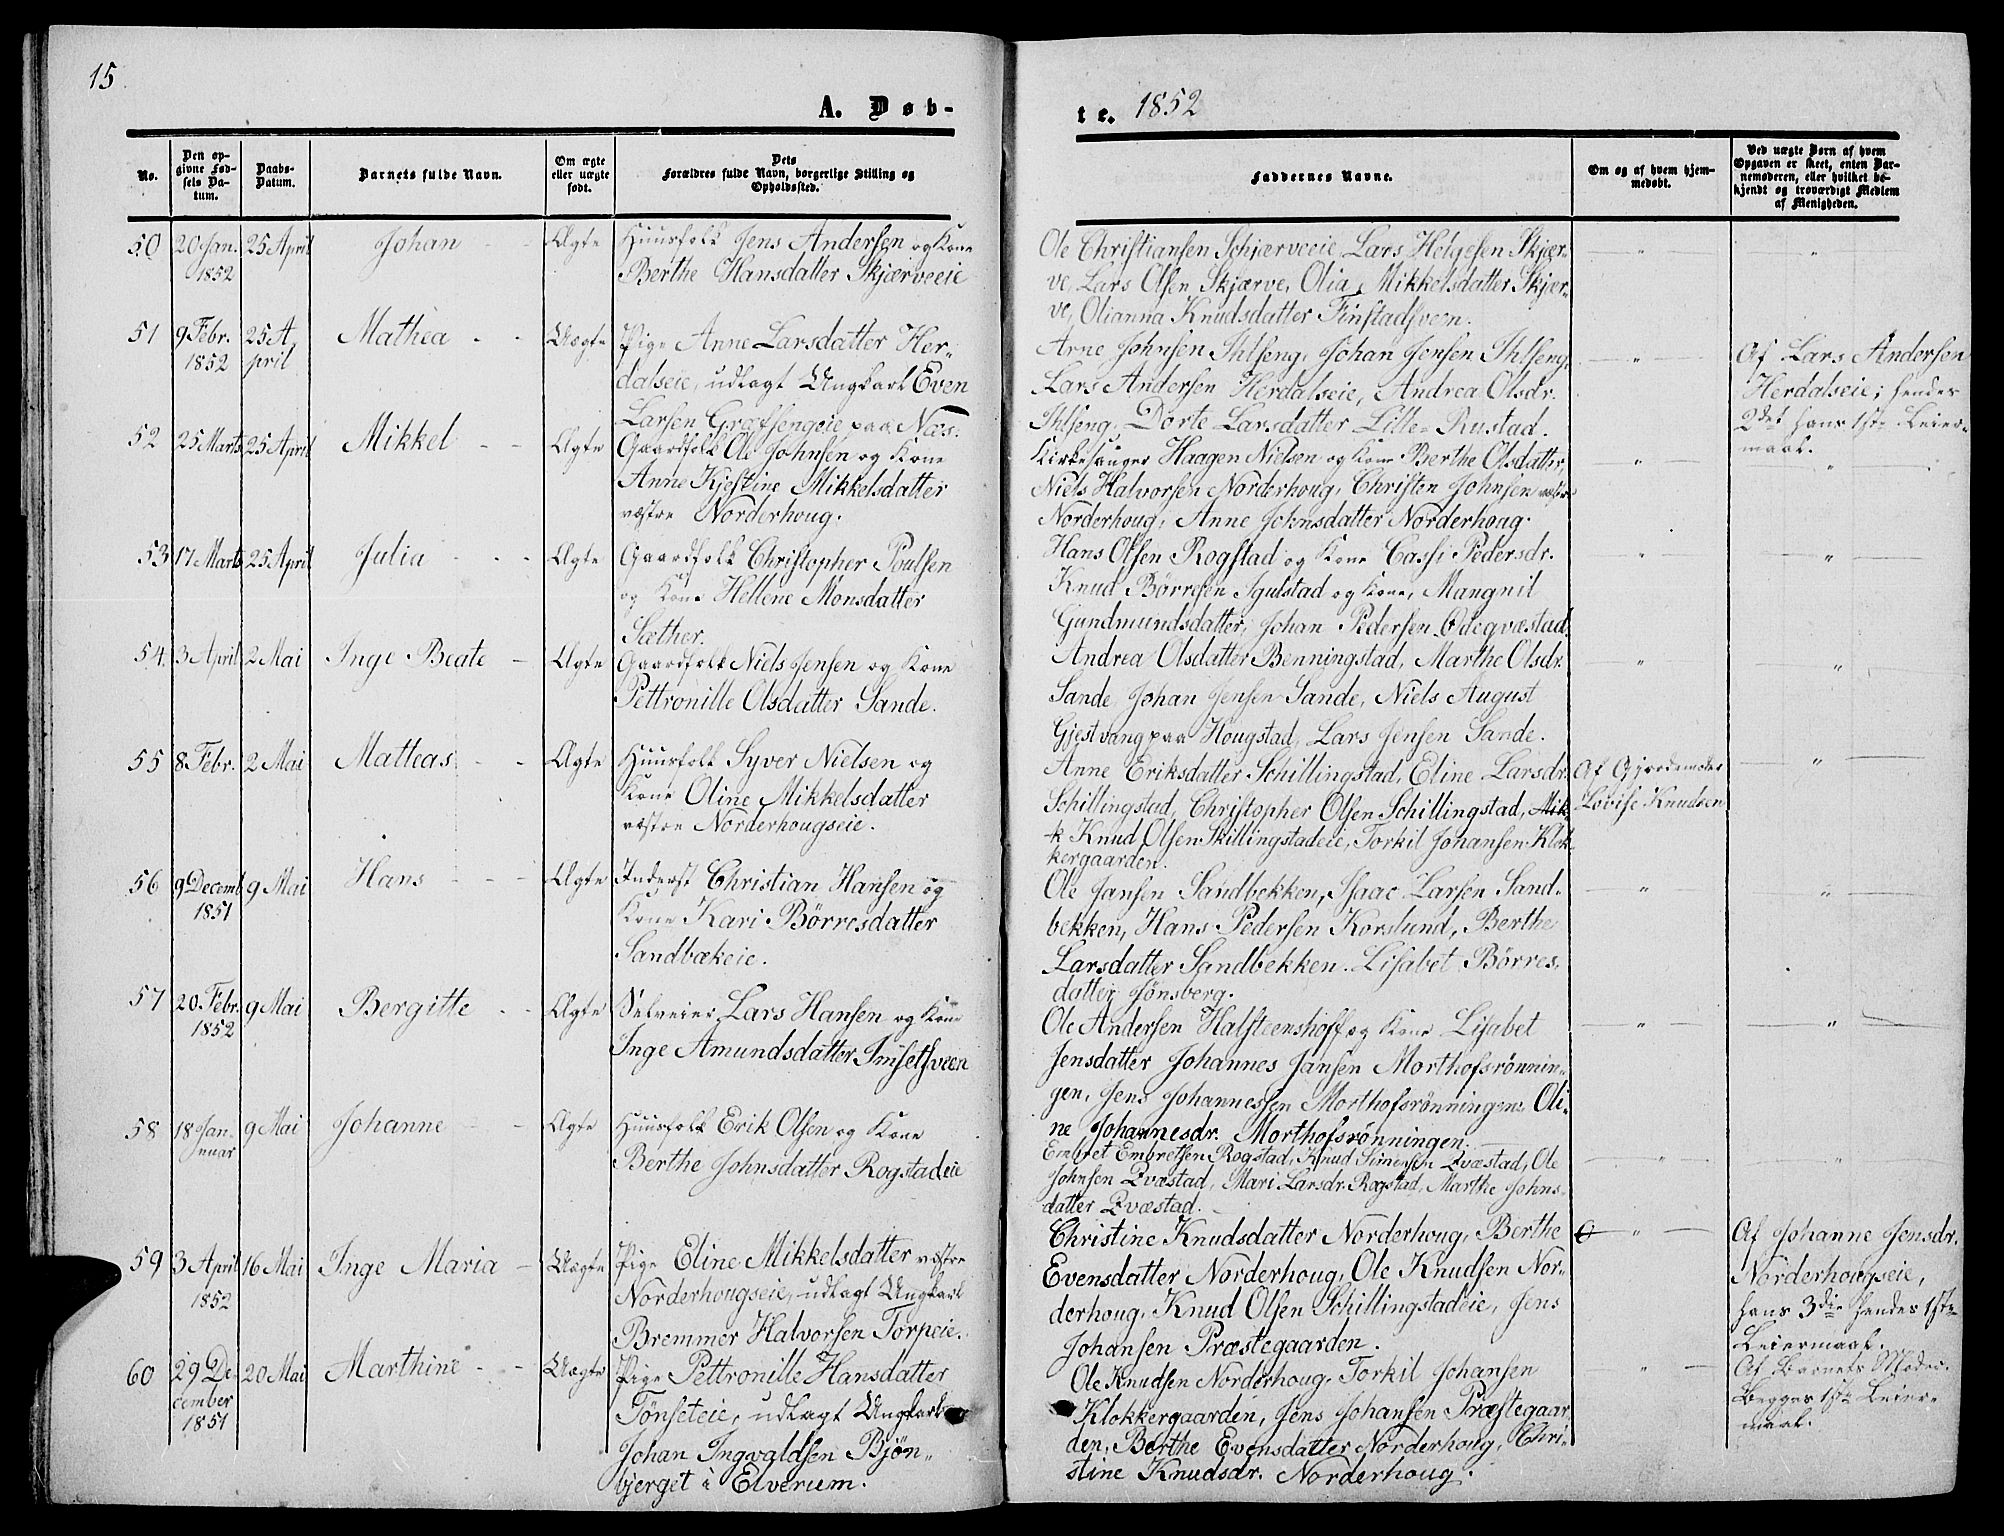 15
A. Døb-
No.
Den op-
givne Fød-
sels Da-
tum.
Daabs-
Datum.
Barnets fulde Navn.
Om ægte
eller uægte
født.
Dets
Forældres fulde Navn, borgerlige Stilling og
Opholdssted.
50 20 Jan. 25 April Johan - - Ægte Huusfolk Jens Andersen og Kone
1852 Berthe Hansdatter Skjærveeie
51 9 Febr. 25 A- Mathea - - Uægte Pige Anne Larsdatter Her-
1852 pril dalseie, udlagt Ungkarl Even
Larsen Græfsengeie paa Næs.
52 25 Marts 25 April Mikkel - - Ægte Gaardfolk Ole Johnsen og Kone
Anne Kjestine Mikkelsdatter
vestre Norderhoug.
53 17 Marts 25 April Julia - - - Ægte Gaardfolk Christopher Poulsen
og Kone Hellene Monsdatter
Sæther.
54. 3 April 2 Mai Inge Beate - Ægte Gaardfolk Niels Jensen og Kone
Pettronille Olsdatter Sande.
55 8 Febr. 2 Mai Matteas - - Ægte Huusfolk Syver Nielsen og
Kone Oline Mikkelsdatter
vestre Norderhougseie.
56 9 Decemb 9 Mai Hans - - - Ægte Inderst Christian Hansen og
1851 Kone Kari Börresdatter
Sandbækeie.
57 20. Febr. 9 Mai Bergitte - - Ægte Selveier Lars Hansen og Kone
1852 Inge Amundsdatter Imsetsveen
58 18 Jan- 9 Mai Johanne - - Ægte Huusfolk Erik Olsen og Kone
nuar Berthe Johnsdatter Rogstadeie
59 3 April 16 Mai Inge Maria - Uægte Pige Eline Mikkelsdatter vestre
1852 Norderhougseie, udlagt Ungkarl
Bremmer Halvorsen Torpeie.
60 29 De- 20 Mai Marthine - - Uægte Pige Pettronille Hansdatter
cember Tönseteie, udlagt Ungkarl
1851 Johan Ingvaldsen Bjön-
bjerget i Elverum.
te. 1852
Faddernes Navne.
Om og af hvem hjem-
medøbt.
Ved uægte Børn af hvem
Opgaven er skeet, enten Bar-
nemoderen, eller hvilket be-
kjendt og troværdigt Medlem
af Menigheden.
Ole Christiansen Schjærveeie, Lars Helgesen Skjær- " "
ve, Lars Olsen Skjærve, Olia Mikkelsdatter Skjær-
ve, Olianna Knudsdatter Finstadsveen.
Arne Johnsen Ihlseng, Johan Jensen Ihlseng, " Af Lars Andersen
Lars Andersen Herdalseie, Andrea Olsdr. Herdalseie; hendes
Ihlseng, Dorte Larsdatter Lille-Rustad. 2det hans 1ste Leier-
maal.
Kirkesanger Haagen Nielsen og Kone Berthe Olsdatter, " "
Niels Halvorsen Norderhoug, Christen Johnsen vestre
Norderhoug, Anne Johnsdatter Norderhoug.
Hans Olsen Rogstad og Kone Cassi Pedersdr. " "
Knud Börresen Igulstad og Kone, Mangnil
Gundmundsdatter, Johan Pedersen Ödeqvæstad.
Andrea Olsdatter Benningstad, Marthe Olsdr. " "
Sande, Johan Jensen Sande, Niels August
Gjestvang paa Hougstad, Lars Jensen Sande.
Anne Eriksdatter Schillingstad, Eline Larsdr. Af Gjordemoder "
Schillingstad, Christopher Olsen Schillingstad, Mik- Lovise Knudsen
k Knud Olsen Skillingstadeie, Torkil Johansen Klok-
kergaarden.
Ole Jansen Sandbekken, Isaac Larsen Sand- " "
bekken, Hans Pedersen Korslund, Berthe
Larsdatter Sandbekken. Lisabet Börres-
datter Jönsberg.
Ole Andersen Halsteenshoff og Kone Lisabet " "
Jensdatter Johannes Jansen Morthofsrönnin-
gen, Jens Johannessen Morthofsrönningen, Oli-
ne Johannesdr. Morthofsrönningen.
Embret Embretsen Rogstad, Knud Simensen Qvæstad, Ole " "
Johnsen Qvæstad, Mari Larsdr. Rogstad, Marthe Johns-
datter Qvæstad.
Christine Knudsdatter Norderhoug, Berthe " Af Johanne Jensdr.
Evensdatter Norderhoug, Ole Knudsen Nor- Norderhougseie,
derhoug, Knud Olsen Schillingstadeie, Jens hans 3die hendes 1ste
Johansen Præstegaarden. Leiermaal.
Ole Knudsen Norderhoug, Torkil Johansen " Af Barnets Moder.
Klokkergaarden, Jens Johansen Præstegaar- Begges 1ste Leier-
den, Berthe Evensdatter Norderhoug, Chri- maal.
stine Knudsdr. Norderhoug.